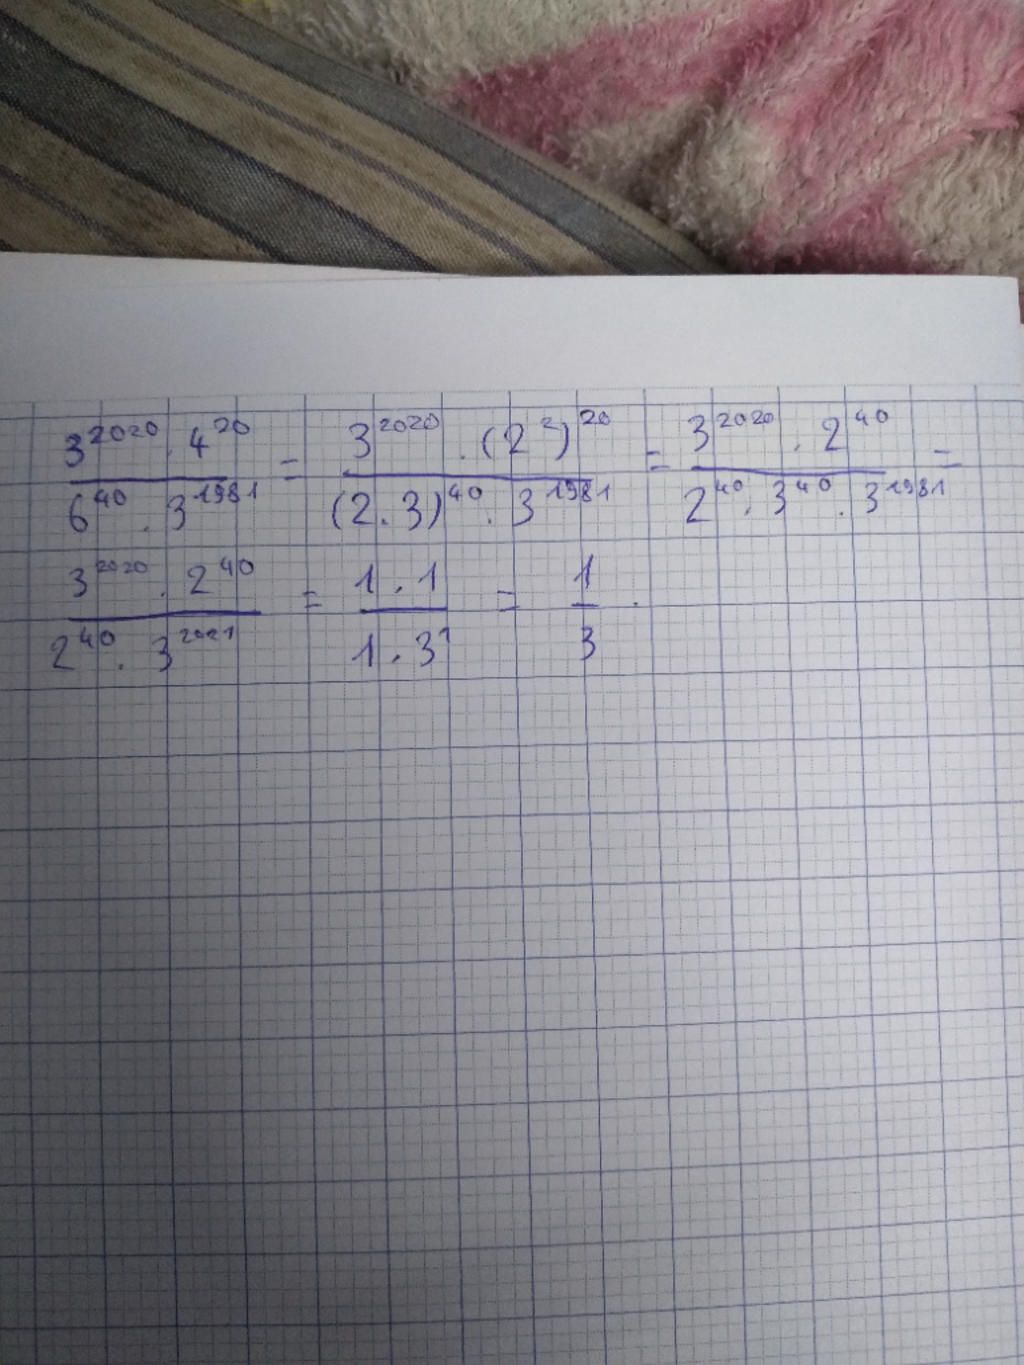 3^2020 . 4^20 / 6^40 . 3^1981 = 3^2020 . (2^2)^20 / (2.3)^40 . 3^1981 = 3^2020 . 2^40 / 2^40 . 3^40 . 3^1981 =
3^2020 . 2^40 / 2^40 . 3^2021 = 1 . 1 / 1 . 3^1 = 1 / 3 .